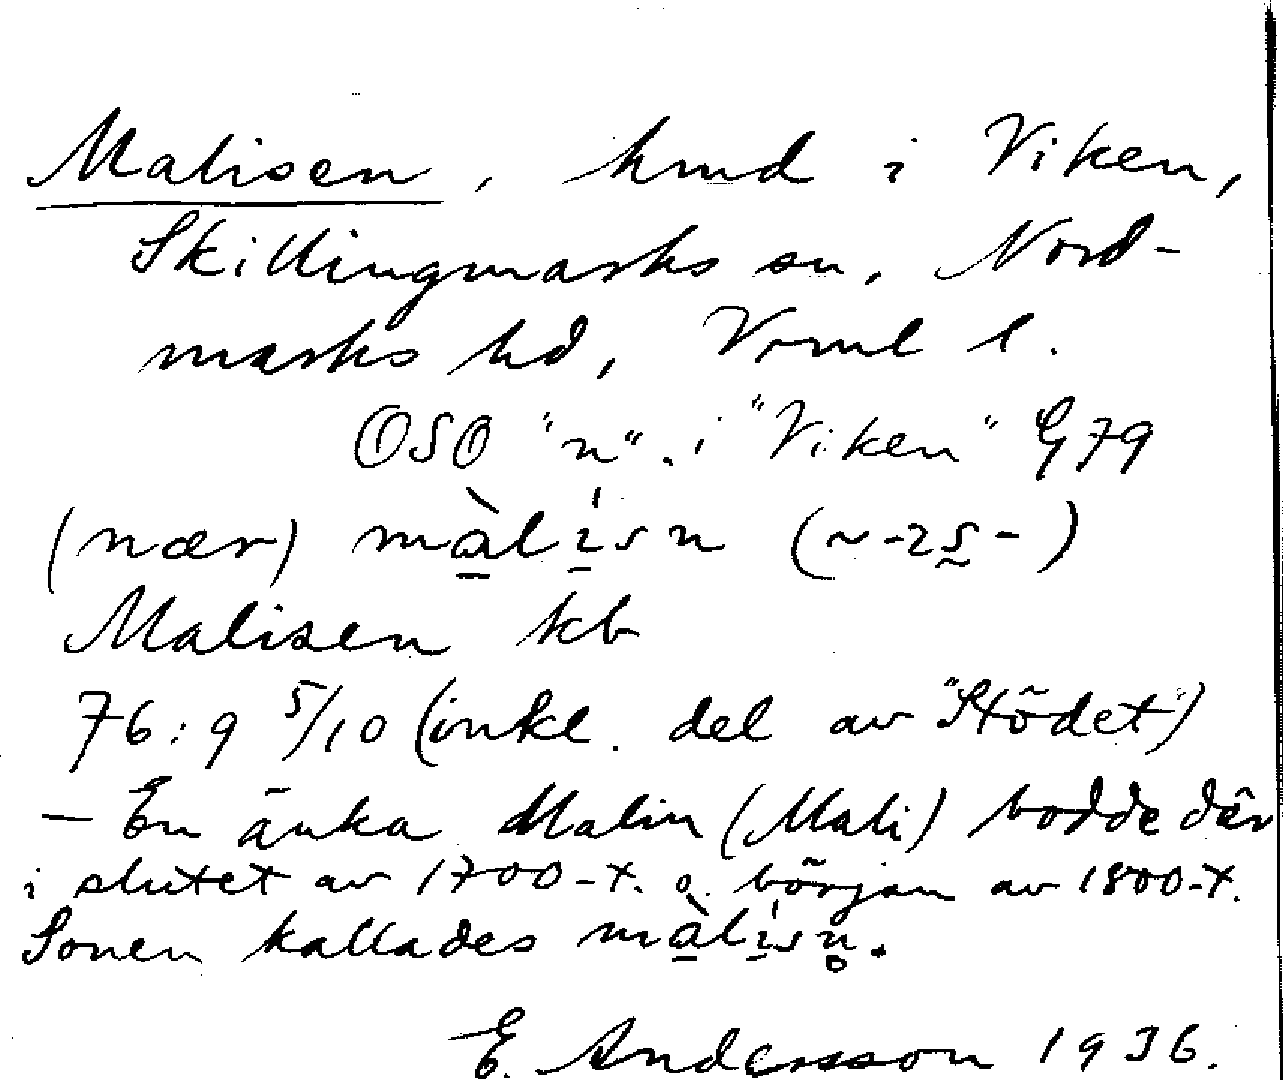 Malisen, hmd i Viken,
Skillingmarks sn, Nord-
marks hd, Vrml l.
OSO "n". i "Viken" G79
(nær) màlísn (~-ıs-)
Malisen kb
76:9 5/10 (inkl. del av "Stödet")
— En änka Malin (Mali) bodde där
i slutet av 1700-t. o. början av 1800-t.
Sonen kallades màlísn̥.
E. Andersson 1936.